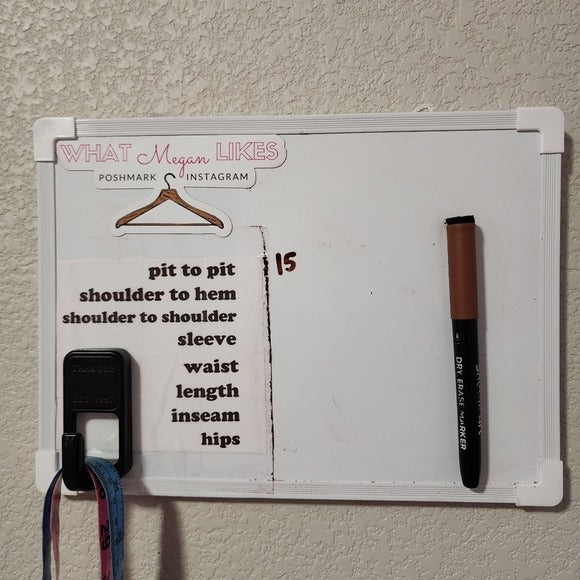 WHAT Megan LIKES
POSHMARK INSTAGRAM
pit to pit 15
shoulder to hem
shoulder to shoulder
sleeve
waist
length
inseam
hips
TRAEGER
EST. 1987
DRY ERASE MARKER
29